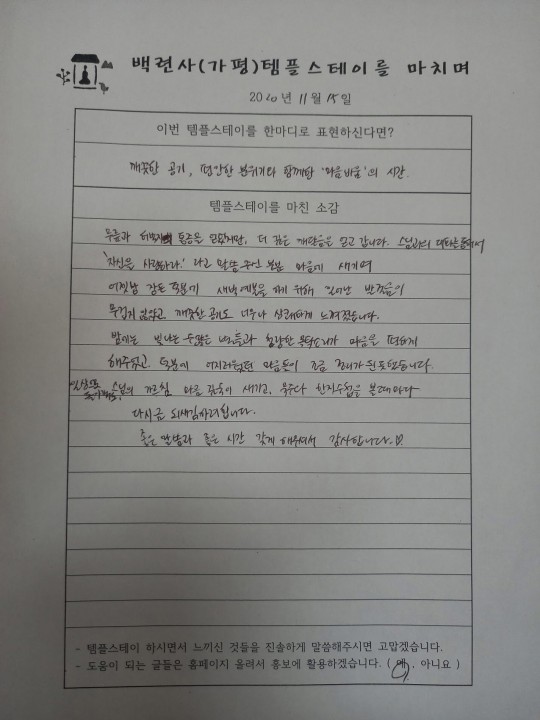 백련사(가평)템플스테이를 마치며
2020년 11월 15일
이번 템플스테이를 한마디로 표현하신다면?
깨끗한 공기, 편안한 분위기와 함께한 '마음비움'의 시간.
템플스테이를 마친 소감
무릎과 허벅지의 통증은 얻었지만, 더 깊은 깨달음을 얻고 갑니다. 스님과의 대화를 통해서
'자신을 사랑하라.' 라고 말씀 주신 부분 마음에 새기며
어젯밤 잠든 덕분에 새벽예불을 하기 위해 일어난 발걸음이
무겁지 않았고, 깨끗한 공기도 더욱나 상쾌하게 느껴졌습니다.
밤에는 빛나는 수많은 별들과 청량한 목탁소리가 마음을 편하게
해주었고, 덕분에 어지러웠던 마음들이 조금 정리가 된 듯 했습니다.
일상으로 돌아가서도 스님의 가르침 마음 깊숙이 새기고, 묵주와 한지수첩을 볼때마다
다시금 되새김하려 합니다.
좋은 말씀과 좋은 시간 갖게 해주셔서 감사합니다.
- 템플스테이 하시면서 느끼신 것들을 진솔하게 말씀해주시면 고맙겠습니다.
- 도움이 되는 글들은 홈페이지 올려서 홍보에 활용하겠습니다. ( 예 , 아니요 )